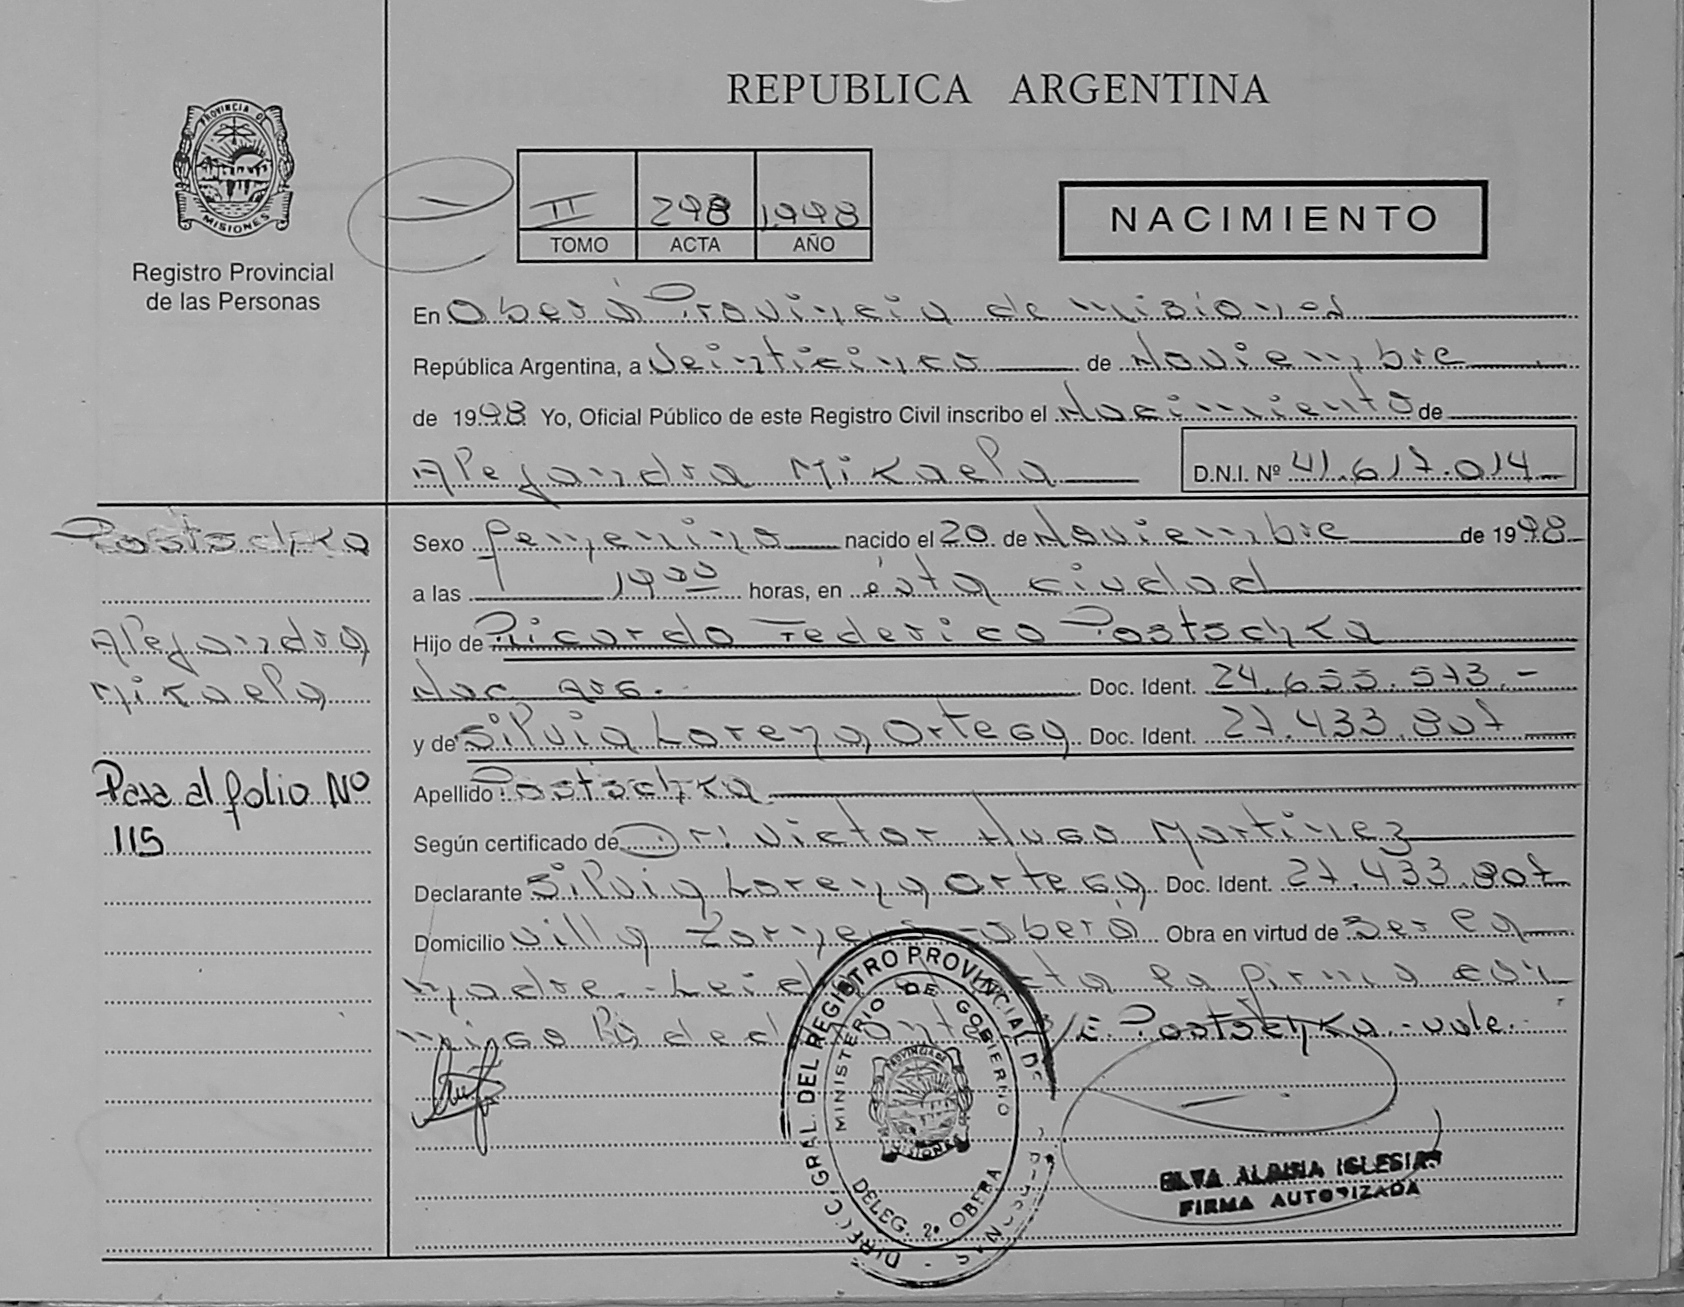 REPUBLICA ARGENTINA
PROVINCIA DE
MISIONES
Registro Provincial
de las Personas
II 298 1998
TOMO ACTA AÑO
NACIMIENTO
En Oberá Provincia de Misiones
República Argentina, a Veinticinco de Noviembre
de 1998 Yo, Oficial Público de este Registro Civil inscribo el Nacimiento de
Alejandra Mikaela D.N.I. Nº 41.617.014
Postschka
Sexo femenino nacido el 20 de Noviembre de 1998
a las 19 00 horas, en ésta ciudad
Alejandra
Hijo de Ricardo Federico Postschka
Mikaela
Nac. arg. Doc. Ident. 24.655.573.-
y de Silvia Lorena Ortega Doc. Ident. 27.433.807
Pasa al folio Nº
115
Apellido Postschka
Según certificado de Dr: Victor Hugo Martinez
Declarante Silvia Lorena Ortega Doc. Ident. 27.433.807
Domicilio Villa Oberá Obra en virtud de ser la
madre. Leida la firma con
migo la E/E Postschka - vale.-
DIRECC. GRAL. DEL REGISTRO PROVINCIAL DE
MINISTERIO DE GOBIERNO
PROVINCIA DE
MISIONES
DELEG. 2º OBERA
ELVA ALBINA IGLESIAS
FIRMA AUTORIZADA